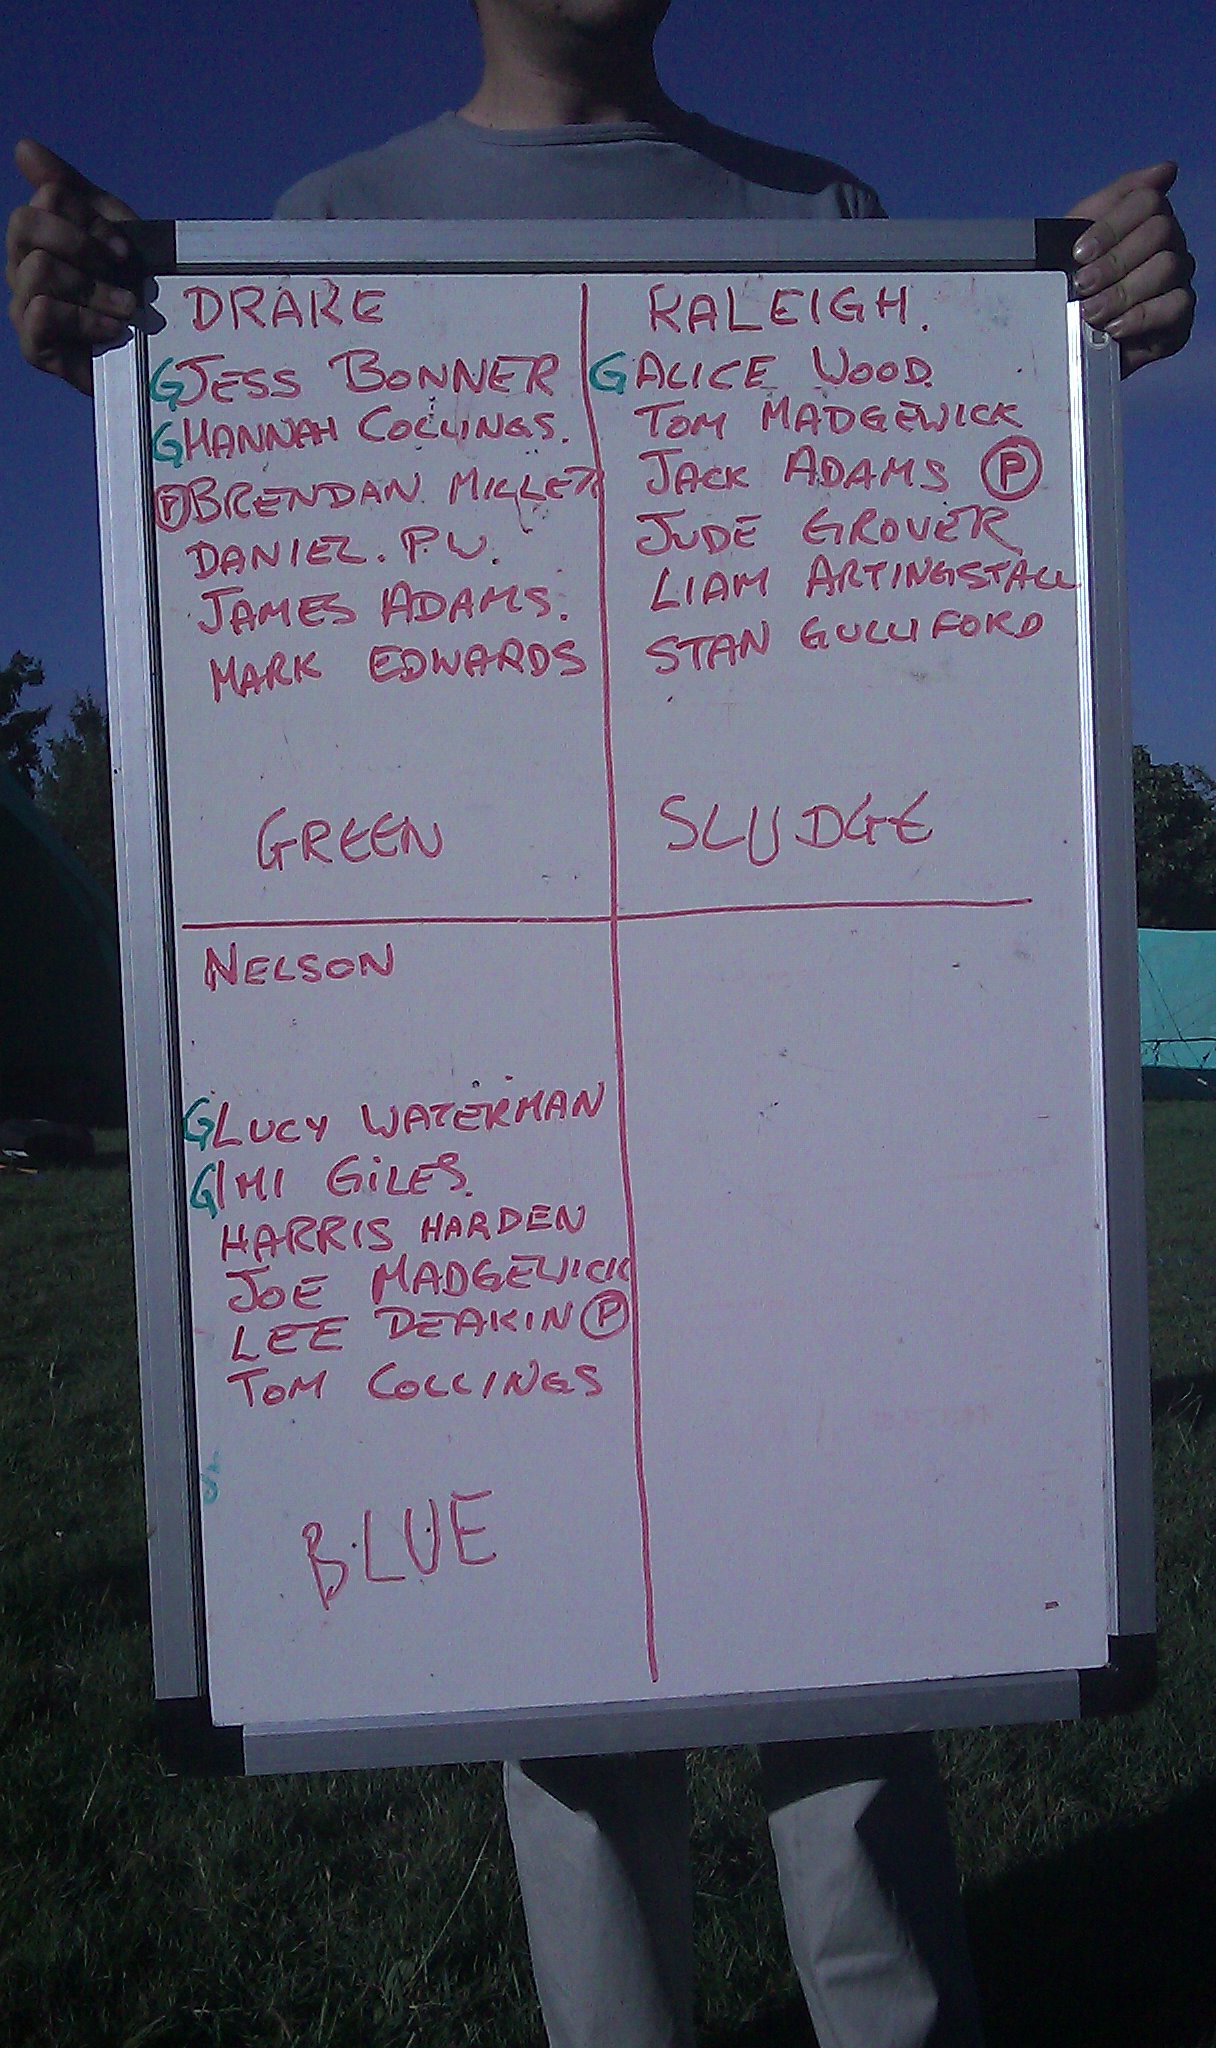 DRAKE
G JESS BONNER
G HANNAH COLLINGS.
P BRENDAN MILLER
DANIEL. P.W.
JAMES ADAMS.
MARK EDWARDS
GREEN
RALEIGH.
G ALICE WOOD
TOM MADGEWICK
JACK ADAMS P
JUDE GROVER
LIAM ARTINGSTALL
STAN GULLIFORD
SLUDGE
NELSON
G LUCY WATERMAN
G IMI GILES.
HARRIS HARDEN
JOE MADGEWICK
LEE DEAKIN P
TOM COLLINGS
BLUE